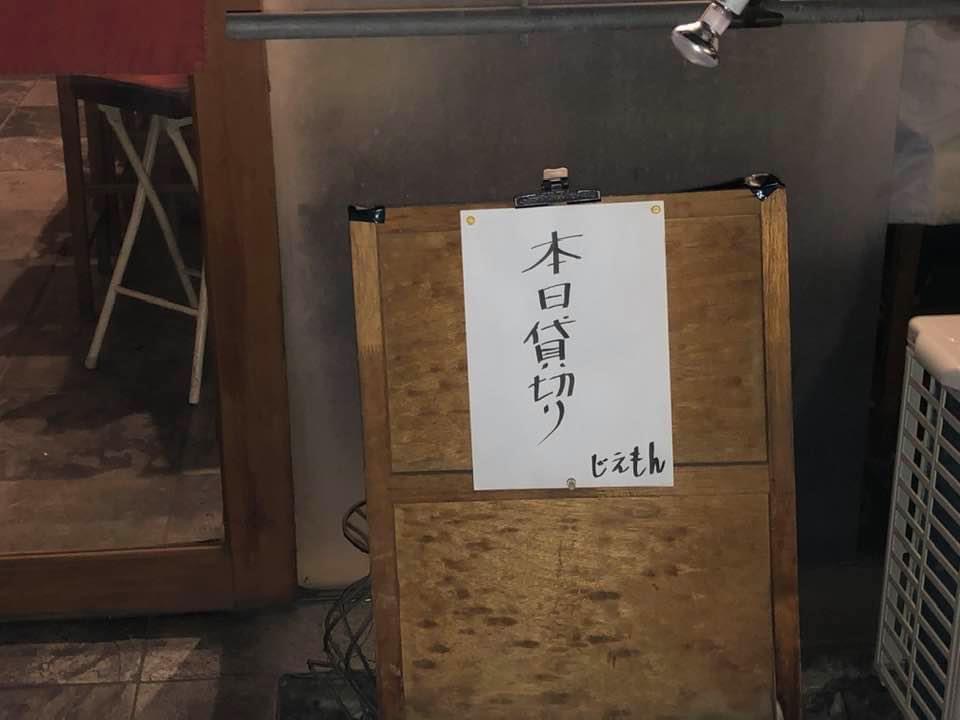 本日貸切り
じえもん